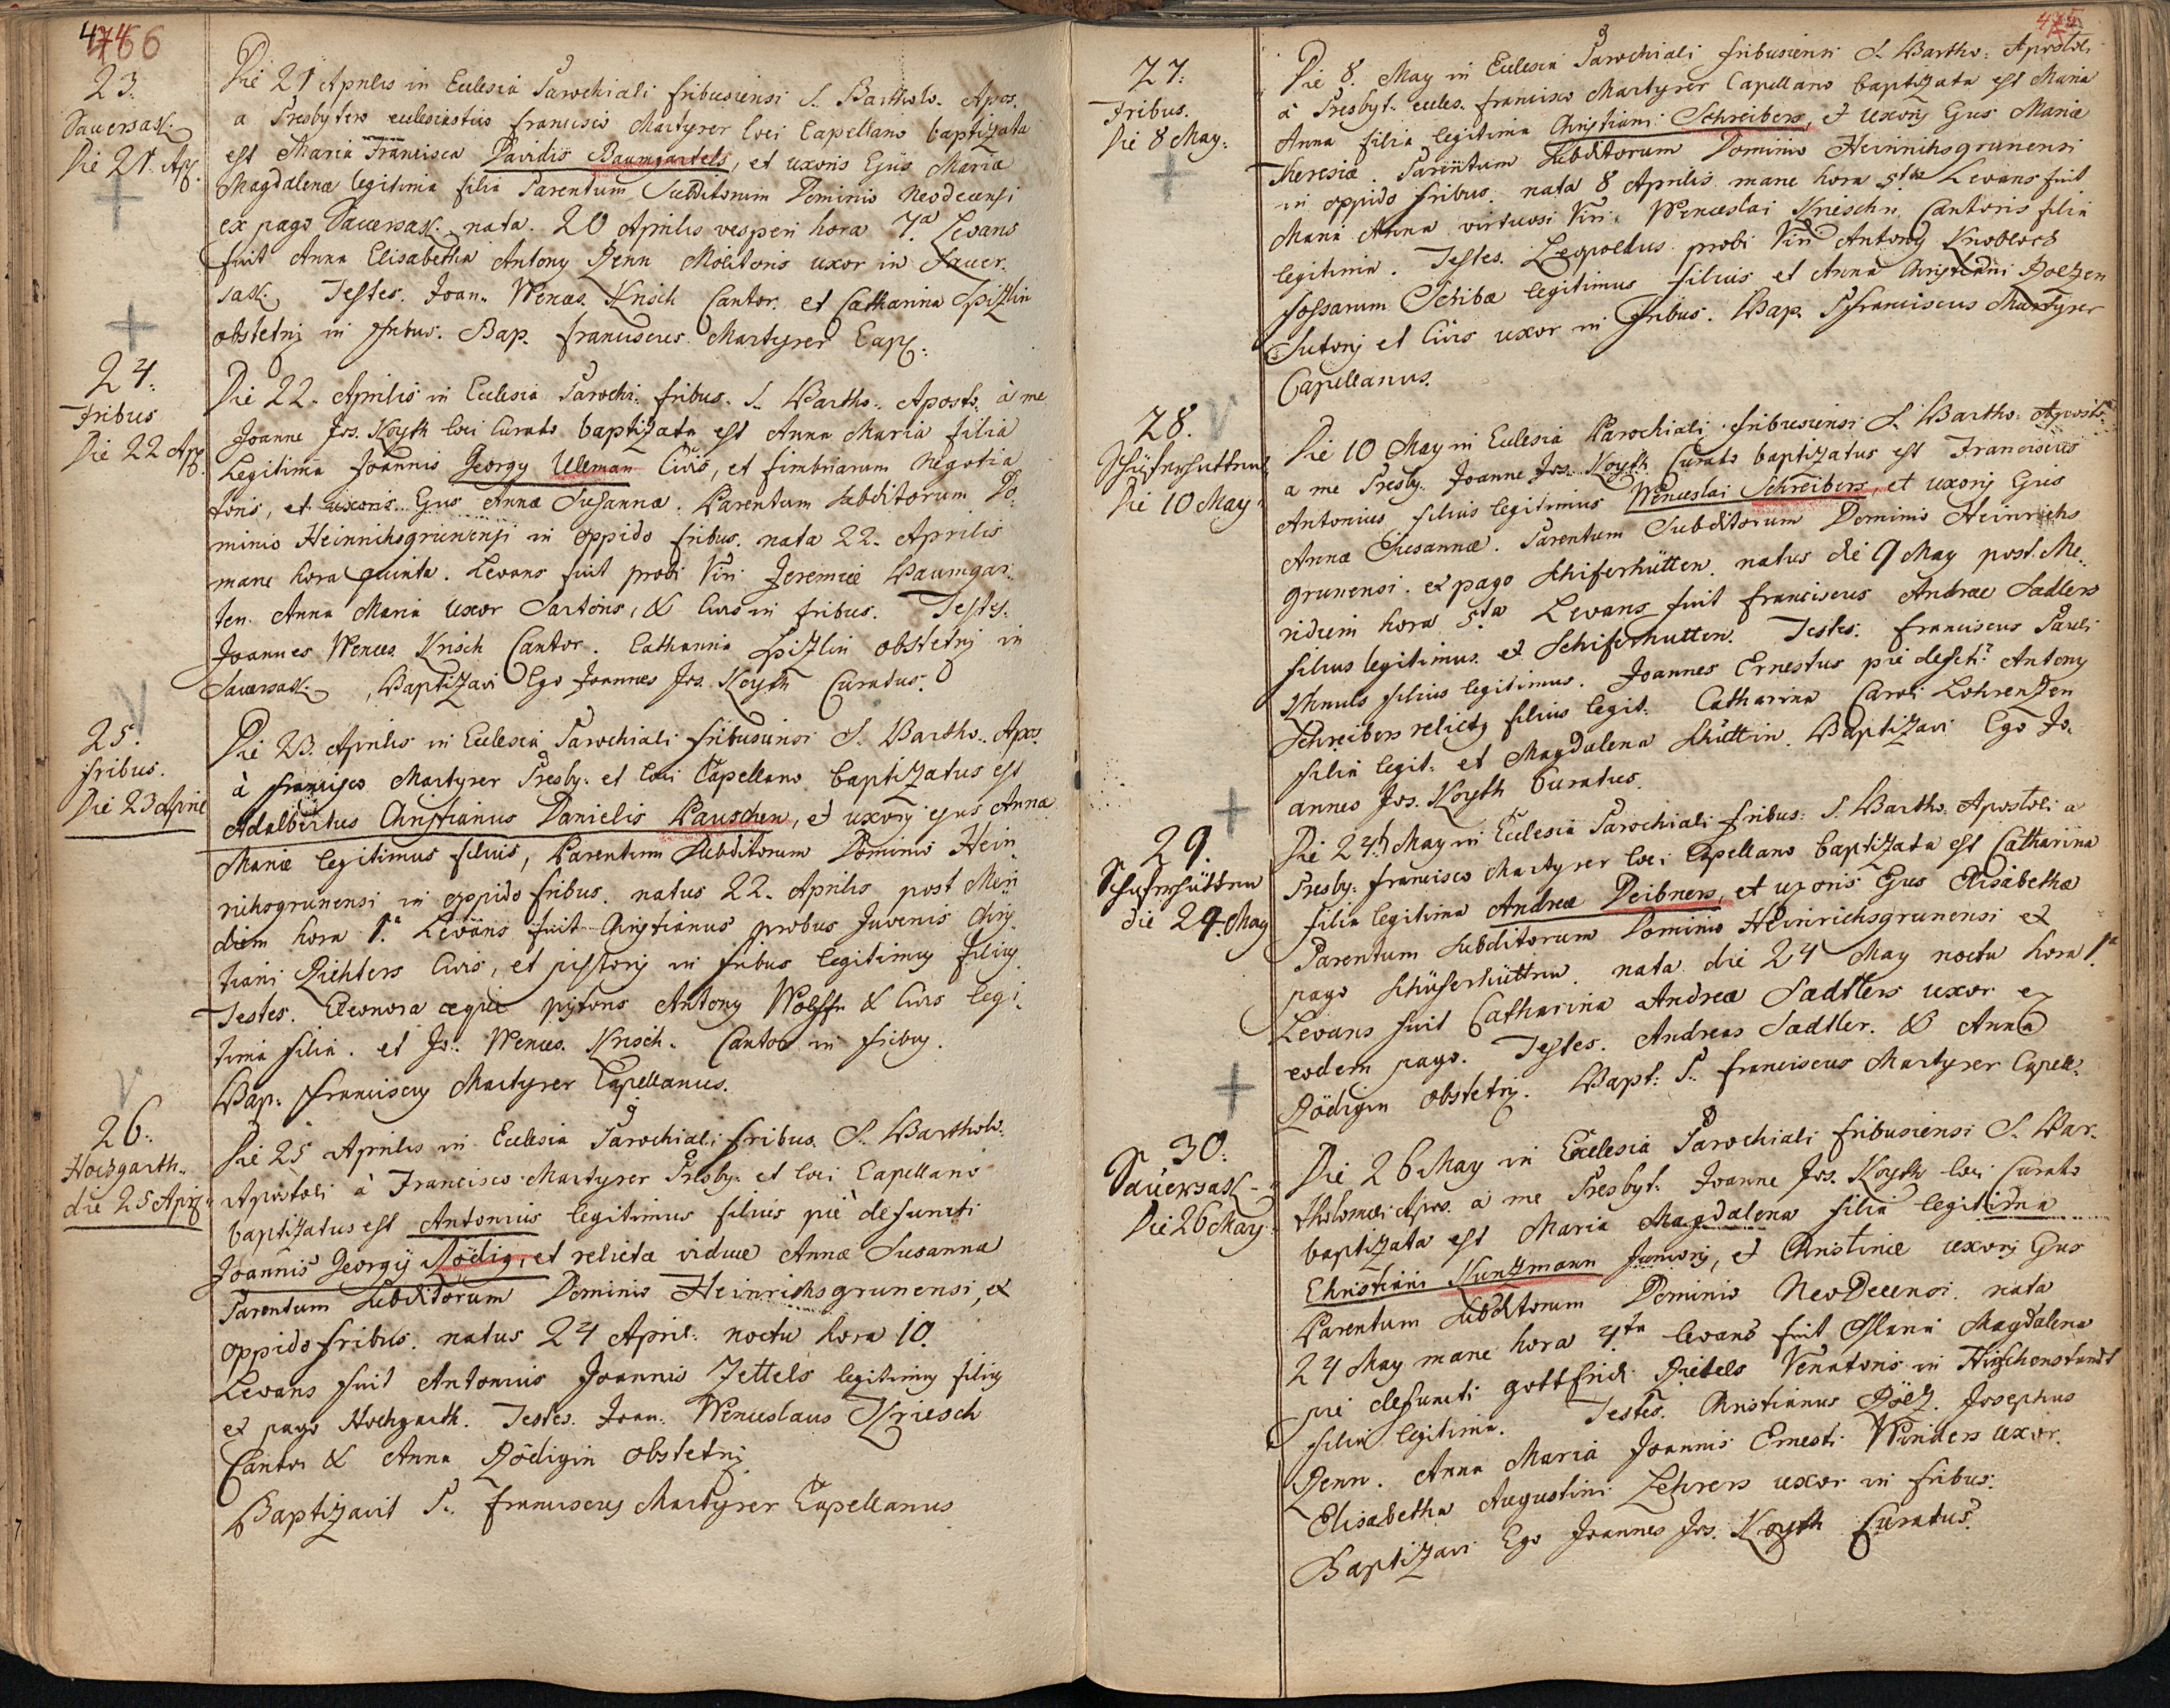 4746 6
23.
Sauersack.
Die 21. Ap.
Die 21 Aprilis in Ecclesia Parochiali fribusiensi S. Bartholo. Apos.
a Presbytero ecclesiastico francisco Martyrer loci Capellano baptizata
est Maria Francisca Davidis Baumgartels, et uxoris Ejus Maria
Magdalena legitima filia Parentum Subditorum Dominio Neodecensi
ex pago Sauersack. nata. 20 Aprilis vesperi hora 7.a Levans
fuit Anna Elisabetha Antony Denn Molitoris uxor in Sauer.
sack. Testes. Joan. Wences. Krisch Cantor. et Catharina
obstetrix in fribus. Bap. franciscus Martyrer Cap.
24.
Fribus
Die 22 Ap.
Die 22. Aprilis in Ecclesia Parochi. fribus. S. Bartho. Aposto. à me
Joanne Jos. Koyth loci Curato baptizata est Anna Maria filia
Legitima Joannis Georgy Ulleman Civis, et fimbriarum Negotia
toris, et uxoris Ejus Annae Susannae. Parentum Subditorum Do.
minio Heinrichsgrunensi in oppido fribus. nata 22. Aprilis
mane hora quinta. Levans fuit probi Viri Jeremiae Baumgar.
ten. Anna Maria Uxor Sartoris, & Civis in fribus. Testes.
Joannes Wences. Krisch Cantor. Catharina obstetrix in
Sauersack. Baptizavi Ego Joannes Jos. Koyth Curatus.
25.
fribus.
Die 23 April
Die 23. Aprilis in Ecclesia Parochiali fribusiensi S. Bartho. Apos.
à francisco Martyrer Presby. et loci Capellano baptizatus est
Adalbertus Christianus Danielis Pauschen, et uxoris ejus Anna
Mariae legitimus filius, Parentum Subditorum Dominio Hein
richsgrunensi in oppido fribus. natus 22. Aprilis post Meri
diem hora 1.a Levans fuit Christianus probus Juvenis Chris
tiani Richters Civis, et pistoris in fribus legitimus filius
Testes. Eleonora aeque pistoris Antony Wolffn & Civis legi.
tima filia. et Jo. Wences. Krisch. Cantor in fribus.
Bap. franciscus Martyrer Capellanus.
26.
Hochgarth.
die 25 April
Die 25 Aprilis in Ecclesia Parochiali fribus. S. Bartholo.
Apostoli à Francisco Martyrer Presby. et loci Capellano
baptizatus est Antonius legitimus filius piè defuncti
Joannis Georgij Rödig, et relictae viduae Annae Susanna
Parentum Subditorum Dominio Heinrichsgrunensi, ex
oppido fribus. natus 24 April. noctu hora 10.
Levans fuit Antonius Joannis Zettels legitimus filius
ex pago Hochgarth. Testes. Joan. Wenceslaus Kriesch
Cantor & Anna Rödigin obstetrix
Baptizavit P. franciscus Martyrer Capellanus
475
27.
Fribus.
Die 8 May.
Die 8. May in Ecclesia Parochiali fribusiensi S. Bartho. Apostoli
à Presbyt. eccles. francisco Martyrer Capellano baptizata est Maria
Anna filia legitima Christiani Schreibers, et uxoris Ejus Maria
Theresiae. Parentum Subditorum Dominio Heinrichsgrunensi
in oppido fribus. nata 8 Aprilis mane hora 5.ta Levans fuit
Maria Anna virtuosi Viri Wenceslai Krieschn Cantoris filia
legitima. Testes. Leopoldus probi Viri Antony Knobloch
fossarum Scribae legitimus filius et Anna Christiani Poltzen
Sutoris et Civis uxor in fribus. Bap. P. franciscus Martyrer
Capellanus.
28.
Schüferhuttens
Die 10 May
Die 10 May in Ecclesia Parochiali fribusiensi S. Bartho. Aposto.
a me Presby. Joanne Jos. Koyth Curato baptizatus est Franciscus
Antonius filius legitimus Wenceslai Schreibers, et uxoris Ejus
Annae Susannae. Parentum Subditorum Dominio Heinrichs
grunensi. ex pago Schiferhütten. natus die 9 May post. Me.
ridiem hora 5.ta Levans fuit franciscus Andreae Sadlers
filius legitimus ex Schiferhutten. Testes. franciscus Pauli
filius legitimus. Joannes Ernestus pie defcti. Antony
Schreibers relictus filius legit. Catharina Caroli Lohrentzen
filia legit. et Magdalena Schüttin. Baptizavi Ego Jo.
annes Jos. Koyth Curatus.
29.
Schuferhüttnn
die 24. May
Die 24. May in Ecclesia Parochiali fribus. S. Bartho. Apostoli a
Presby. francisco Martyrer loci Capellano baptizata est Catharina
filia legitima Andreae Deibners, et uxoris Ejus Elisabethae
Parentum Subditorum Dominio Heinrichsgrunensi ex
pago Schüferhüttnn. nata die 24 May noctu hora 1.a
Levans fuit Catharina Andreae Sadtlers uxor ex
eodem pago. Testes. Andreas Sadtler. & Anna
Rödigin obstetrix. Bapt. P. franciscus Martyrer Capell.
30.
Sauersack
Die 26 May.
Die 26 May in Ecclesia Parochiali fribusiensi S. Bar.
tholomaei Apos. a me Presbyt. Joanne Jos. Koyth loci Curato
baptizata est Maria Magdalena filia legitima
Christiani Kuntzmann Junioris, et Christinae uxoris Ejus
Parentum Subditorum Dominio NeoDecensi. nata
24 May mane hora 4.ta levans fuit Maria Magdalena
pie defuncti gottfridi Venatoris in Hirschenstandt
filia legitima. Testes. Christianus Pöltz. Josephus
Denn. Anna Maria Joannis Ernesti Winders uxor.
Elisabetha Augustini Lehrers uxor in fribus.
Baptizavi Ego Joannes Jos. Koyth Curatus.